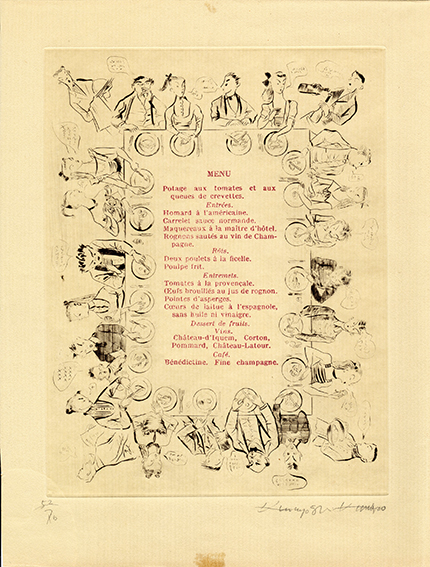 MENU
Potage aux tomates et aux
queues de crevettes.
Entrées.
Homard à l'américaine.
Carrelet sauce normande.
Maquereaux à la maitre d'hôtel.
Rognons sautés au vin de Cham-
pagne.
Rôts.
Deux poulets à la ficelle.
Poulpe frit.
Entremets.
Tomates à la provençale.
Œufs brouillés au jus de rognon.
Pointes d'asperges.
Cœurs de laitue à l'espagnole,
sans huile ni vinaigre.
Dessert de fruits.
Vins.
Château-d'Iquem, Corton,
Pommard, Château-Latour.
Café.
Bénédictine. Fine champagne.